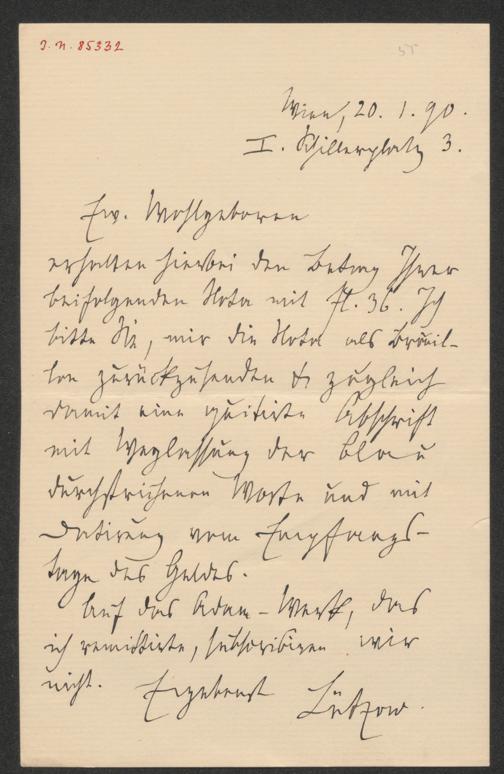 I.N. 85332
Wien, 20. 1. 90.
I. Schillerplatz 3.
Ew. Wohlgeboren
erhalten hierbei den Betrag Ihrer
beifolgenden Nota mit fl. 36. Ich
bitte Sie, mir die Nota als Brouil-
lon zurückzusenden & zugleich
damit eine quitirte Abschrift
mit Weglassung der blau
durchstrichenen Worte und mit
Datirung vom Empfangs-
tage des Geldes.
Auf das Adam-Werk, das
ich remittirte, subscribiren wir
nicht. Ergebenst Lützow.